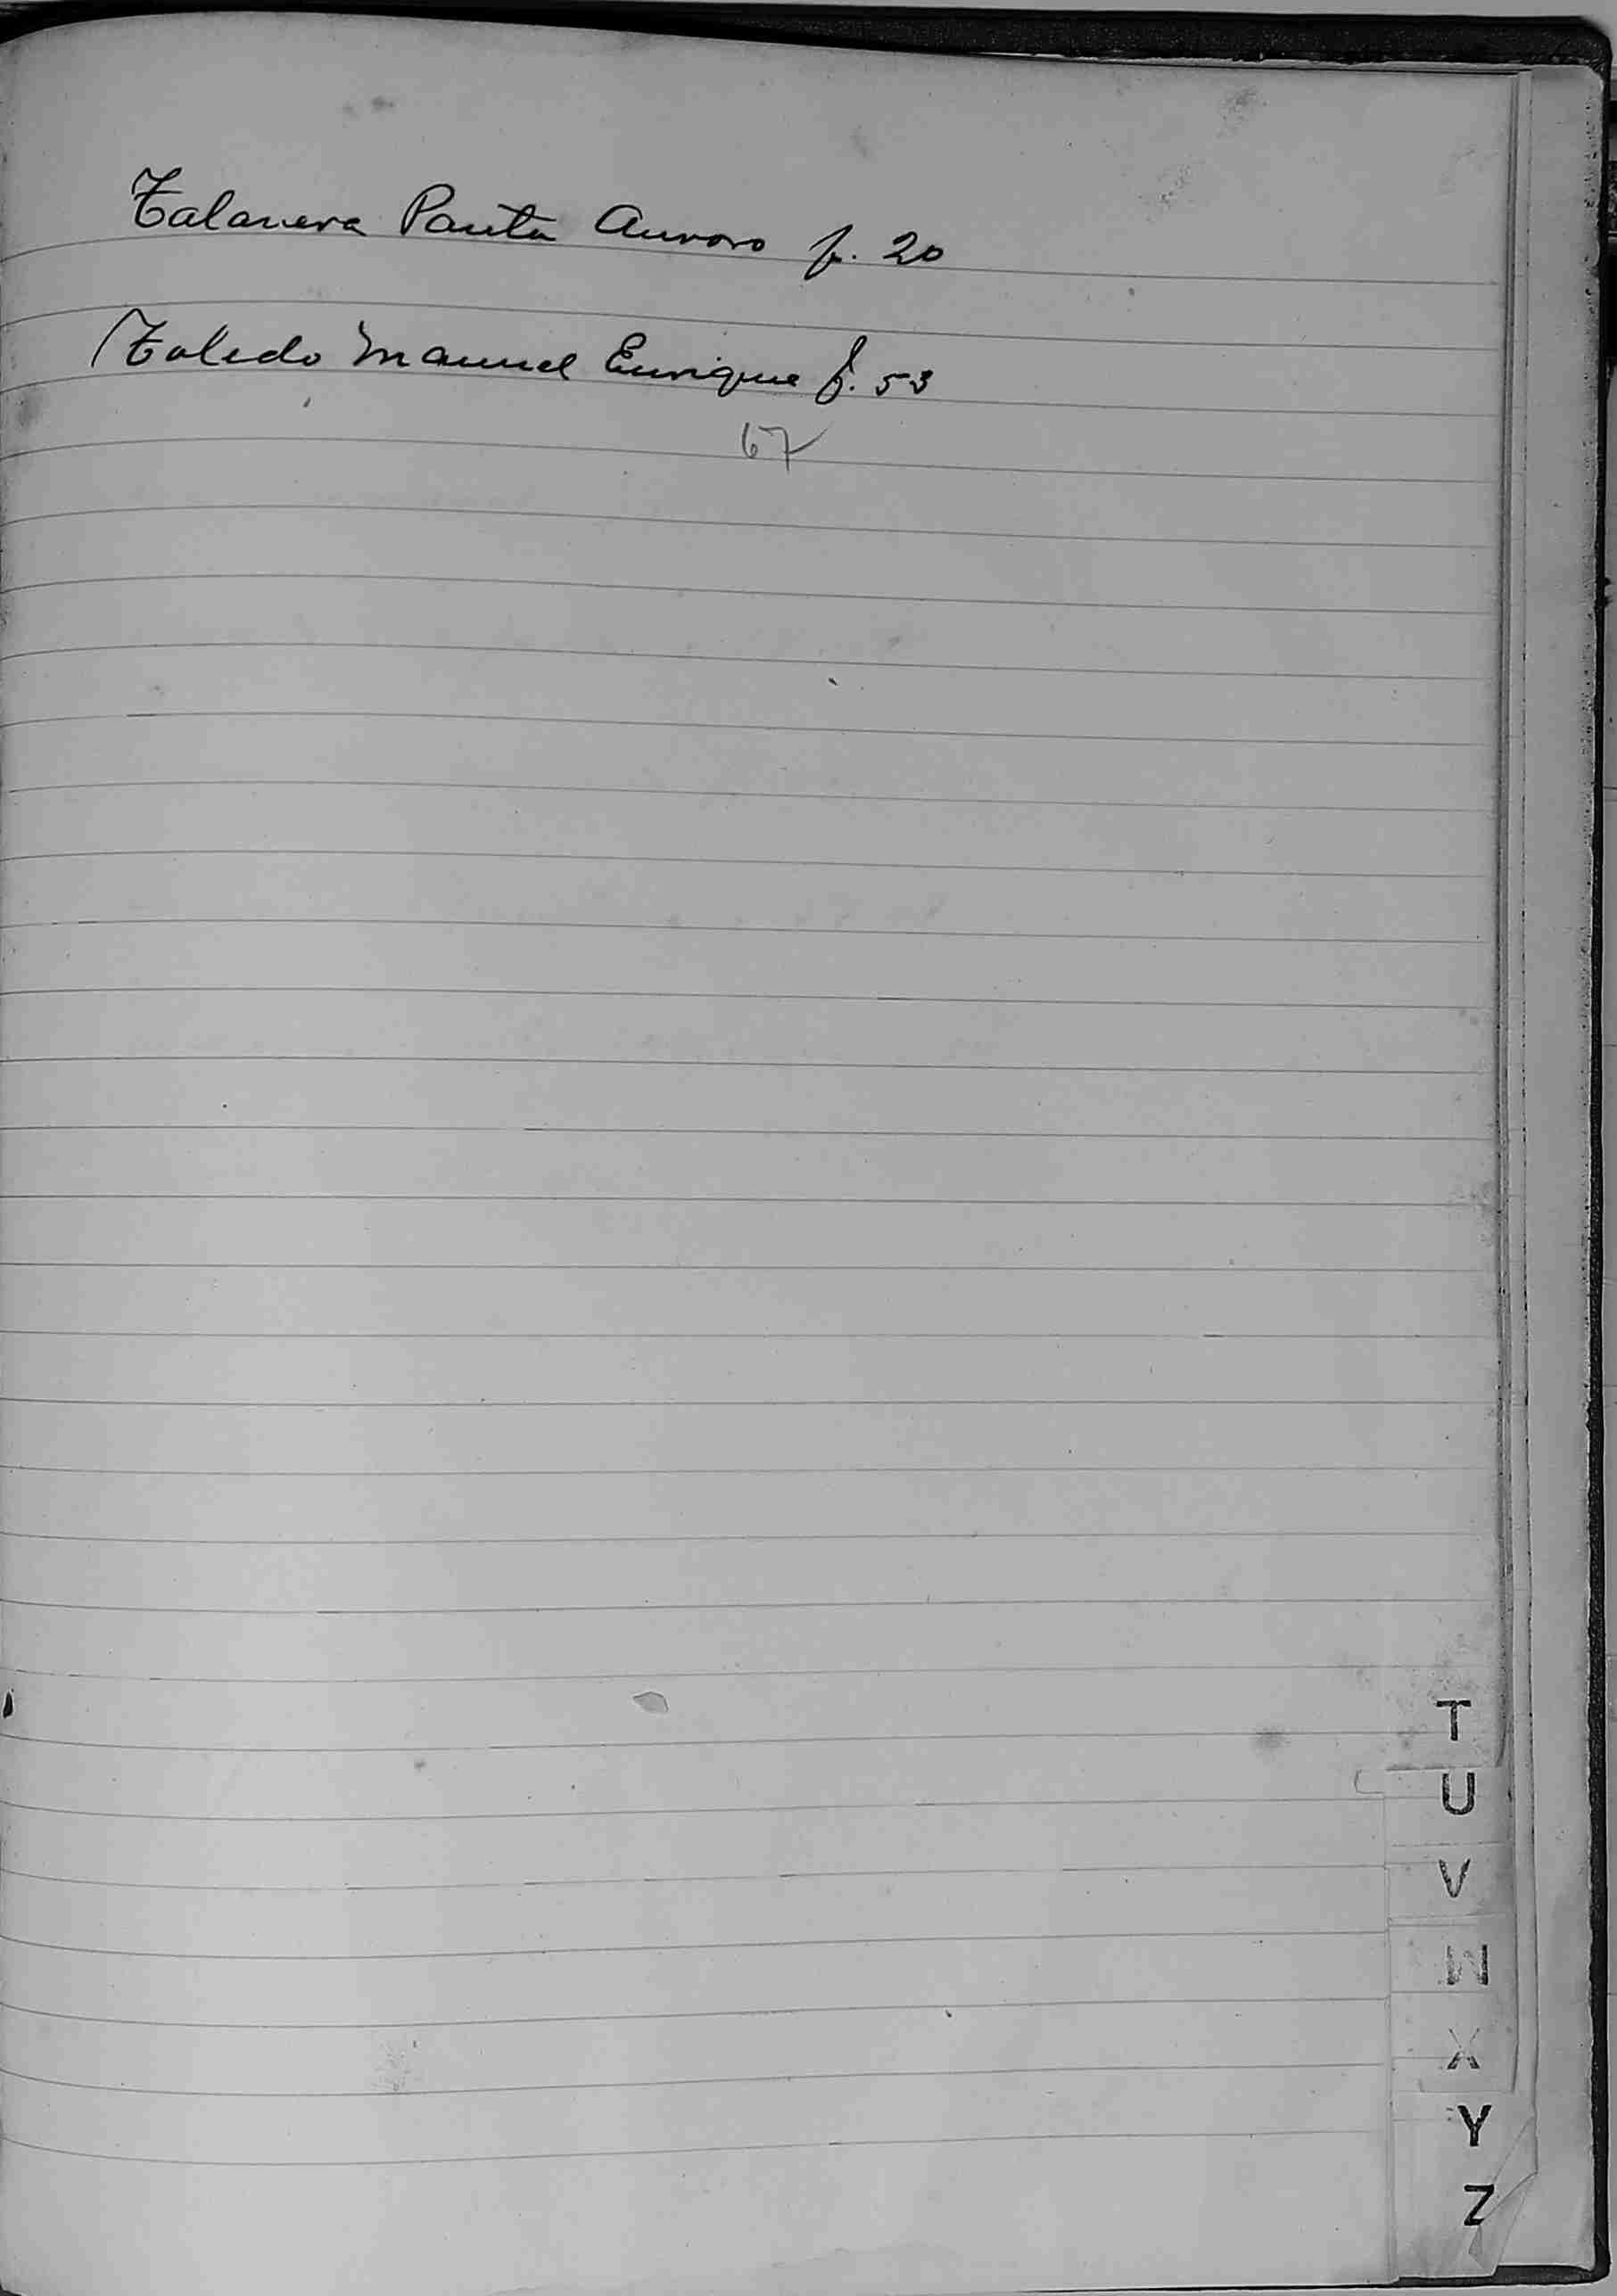 Talavera Pauta Aurora f. 20
Toledo Manuel Enrique f. 53
67
T
U
V
W
X
Y
Z